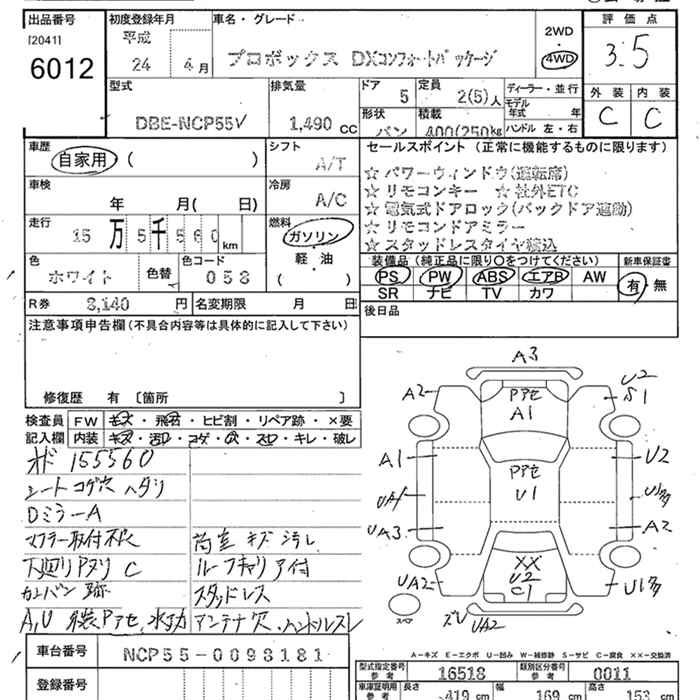 出品番号 初度登録年月 車名・グレード 評価点
[2041] 平成 2WD
6012 24 4月 プロボックス DXコンフォートパッケージ 4WD 3.5
型式 排気量 ドア 定員 ディーラー・並行 外装 内装
5 2(5)人 モデル年式 年
DBE-NCP55V 1,490 CC 形状 積載 ハンドル 左・右 C C
バン 400(250)kg
車歴 シフト セールスポイント (正常に機能するものに限ります)
自家用 ( ) A/T ☆ パワーウィンドウ(運転席)
車検 冷房 ☆ リモコンキー ☆ 社外ETC
年 月( 日) A/C ☆ 電気式ドアロック(バックドア連動)
走行 燃料 ☆ リモコンドアミラー
15万5千560km ガソリン ☆ スタッドレスタイヤ積込
色 色替 色コード 軽・油 装備品 (純正品に限り○をつけてください) 新車保証書
ホワイト 058 ( ) PS PW ABS エアB AW 有・無
SR ナビ TV カワ
R券 8,140 円 名変期限 月 日 後日品
注意事項申告欄 (不具合内容等は具体的に記入して下さい)
修復歴 有 〔箇所 〕
検査員 FW キズ・飛石・ヒビ割・リペア跡・×要
記入欄 内装 キズ・汚レ・コゲ・穴・スレ・キレ・破レ
155560
シートコゲ穴 ハタリ
DミラーA
マフラー取付 荷室 キズ 汚レ
下廻りサビ C ルーフキャリア付
カンバン跡 スタッドレス
A,U アンテナ欠 ハンドルスレ
A3
A2 アセ A1 U2 S1
A1 アセ U1 U2
UA1
UA3 A2
UA2 XX U2 C1 U1
スペア UA2
A-キズ E-エクボ U-凹み W-補修跡 S-サビ C-腐食 XX-交換済
車台番号 NCP55-0098181
型式指定番号 参考 16518 類別区分番号 参考 0011
登録番号 車庫証明用 参考 長さ 419 cm 幅 169 cm 高さ 153 cm